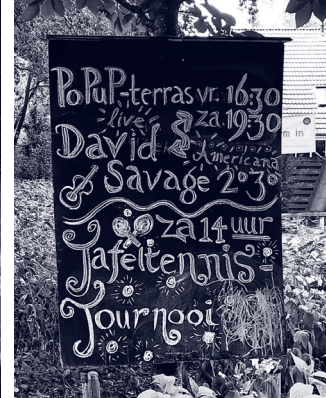 PoPuP-terras vr. 16:30
live za. 19:30
David Americana
Savage 20:30
za 14 uur
Tafeltennis
Tournooi